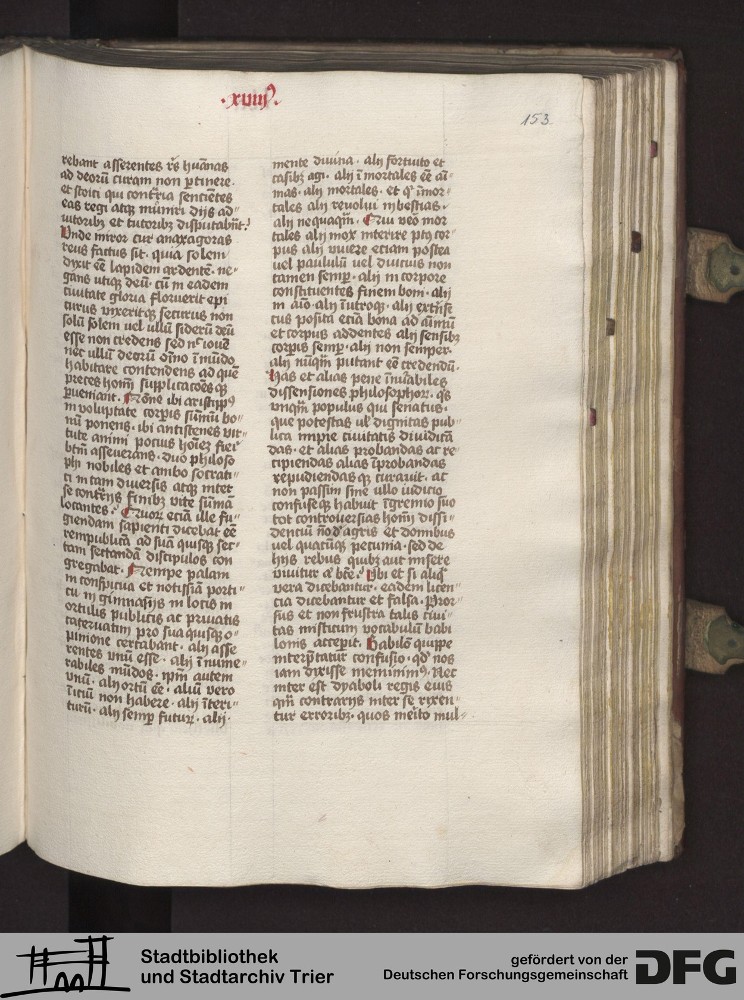 .xviijꝰ.
153
rebant asserentes rꝭ huānas
ad deorū curam non ꝑtinere.
et stoici qui contͣria senciētes
eas regi atqꝫ mūniri dijs ad⸗
iutoribꝫ et tutoribꝫ disputabāt.
Vnde miror cur anaxagoras
reus factus sit. quia solem
dixit eē lapidem ardentē. ne⸗
gans utiqꝫ deū. cū in eadem
ciuitate gloria floruerit epi
curus vixeritqꝫ securus non
solū solem vel ullū siderū deū
esse non credens sed nͨ iouē
nec ullū deorū oīno ī mūdo
habitare contendens ad quē
preces homī supplicacōes qꝫ
ꝑueniant. Nōne ibi aristippꝰ
in voluptate corpis sūmū bo⸗
nū ponens. ibi antistenes vir⸗
tute animi pocius hoīeꝫ fieri
btm̄ asseuerans. duo philoso
phi nobiles et ambo socrati⸗
ci in tam diuersis atqꝫ inter
se contͣrijs finibꝫ vite sūmā
locantes. Quoꝝ eciā ille fu⸗
giendam sapienti dicebat eē
rempublicā ad suā quisqꝫ sec⸗
tam sectandā discipulos con
gregabat. Nempe palam
in conspicua et notissiā porti⸗
cu in gimnasijs in locis in
ortulis publicis ac priuatis
cateruatim pro sua quisqꝫ o⸗
pinione certabant. alij asse
rentes vnū esse. alij īnume⸗
rabiles mūdos. ipm̄ autem
vnū. alij ortū eē. aliū vero
īiciū non habere. alij īteri⸗
turū. alij semꝑ futuꝝ. alij.
mente diuina. alij fortuito et
casibꝫ agi. alij īmortales eē aī⸗
mas. alij mortales. et qͥ īmor⸗
tales alij reuolui in bestias.
alij nequaqm̄. Qui vēo mor
tales alij mox interire ptꝫ cor⸗
pus alij viuere eciam postea
vel paululū vel diucius non
tamen semꝑ. alij in corpore
constituentes finem boni. alij
in aīo. alij ī utroqꝫ. alij extīse
cus posita eciā bona ad aīmū
et corpus addentes alij sensibꝫ
corpis semꝑ. alij non semper.
alij nūqm̄ putant eē credendū.
Has et alias pene īnuābiles
dissensiones philosophoꝝ. qͣs
vnqm̄ populus qui senatus.
que potestas uͥ dignitas pub⸗
lica impie ciuitatis diuidicā
das. et alias probandas ac re⸗
cipiendas alias īprobandas
repudiendas qꝫ curauit. ac
non passim sine ullo iudicio
confuseqꝫ habuit ī gremio suo
tot controuersias homī dissi⸗
denciū nō d̕ agris et domibus
vel quacūqꝫ pecunia. sed de
hijs rebus quibꝫ aut misere
viuitur aͭ bt̄e. Vbi et si aliqͣ
vera dicebantur. eadem licen⸗
cia dicebantur et falsa. Pror⸗
sus et non frustra talis ciui⸗
tas misticum vocabulū babi
lonis accepit. Babilō quippe
interp̄tatur confusio. qd̕ nos
iam dixisse meminimꝰ. Nec
inter est dyaboli regis eius
qm̄ contrarijs inter se rixen⸗
tur erroribꝫ. quos meīto mul⸗
Stadtbibliothek
und Stadtarchiv Trier
gefördert von der
Deutschen Forschungsgemeinschaft
DFG